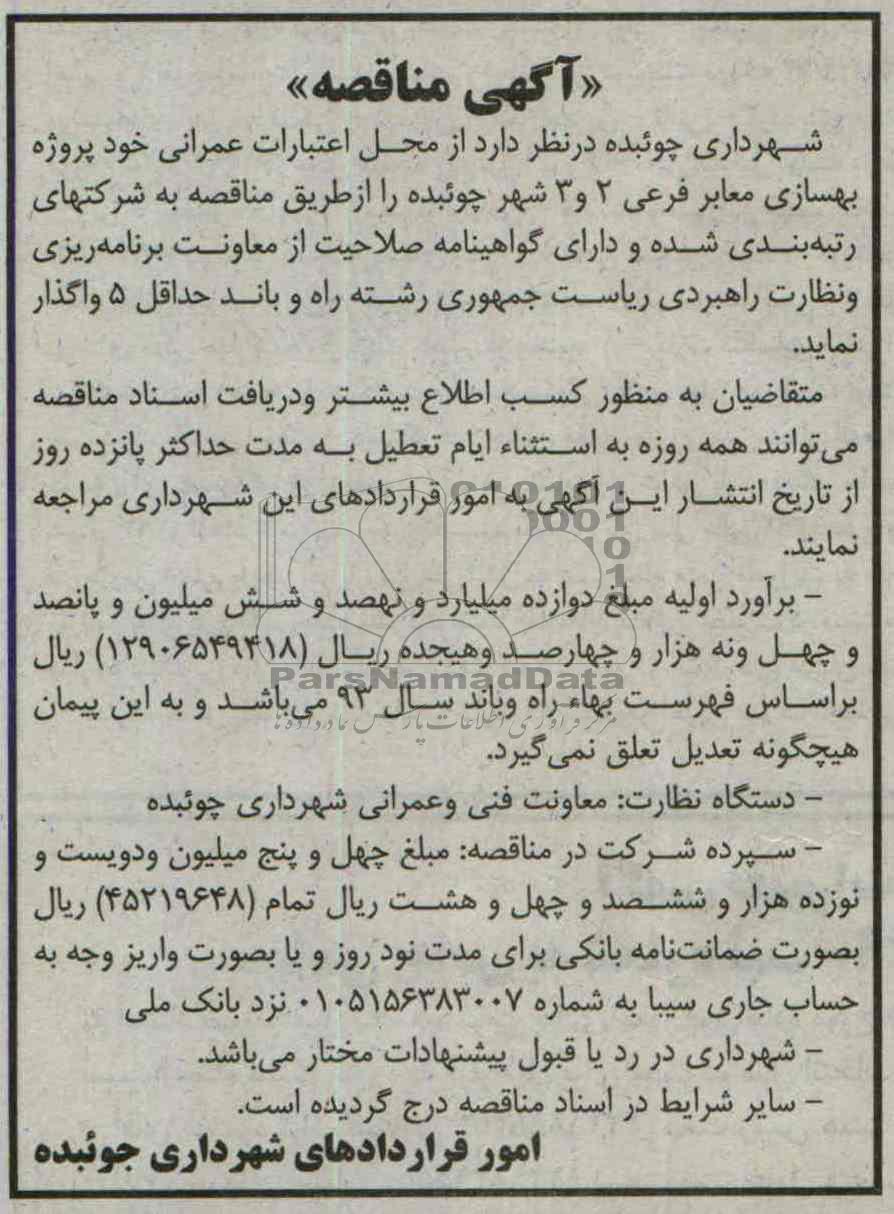 «آگهی مناقصه»
شهرداری چوئبده درنظر دارد از محل اعتبارات عمرانی خود پروژه
بهسازی معابر فرعی ۲ و۳ شهر چوئبده را ازطریق مناقصه به شرکتهای
رتبه‌بندی شده و دارای گواهینامه صلاحیت از معاونت برنامه‌ریزی
ونظارت راهبردی ریاست جمهوری رشته راه و باند حداقل ۵ واگذار
نماید.
متقاضیان به منظور کسب اطلاع بیشتر ودریافت اسناد مناقصه
می‌توانند همه روزه به استثناء ایام تعطیل به مدت حداکثر پانزده روز
از تاریخ انتشار این آگهی به امور قراردادهای این شهرداری مراجعه
نمایند.
- برآورد اولیه مبلغ دوازده میلیارد و نهصد و شش میلیون و پانصد
و چهل ونه هزار و چهارصد وهیجده ریال (۱۲۹۰۶۵۴۹۴۱۸) ریال
ParsNamadData
براساس فهرست بهاء راه وباند سال ۹۳ می‌باشد و به این پیمان
مرکز فرآوری اطلاعات پارس نماد داده ها
هیچگونه تعدیل تعلق نمی‌گیرد.
- دستگاه نظارت: معاونت فنی وعمرانی شهرداری چوئبده
- سپرده شرکت در مناقصه: مبلغ چهل و پنج میلیون ودویست و
نوزده هزار و ششصد و چهل و هشت ریال تمام (۴۵۲۱۹۶۴۸) ریال
بصورت ضمانت‌نامه بانکی برای مدت نود روز و یا بصورت واریز وجه به
حساب جاری سیبا به شماره ۰۱۰۵۱۵۶۳۸۳۰۰۷ نزد بانک ملی
- شهرداری در رد یا قبول پیشنهادات مختار می‌باشد.
- سایر شرایط در اسناد مناقصه درج گردیده است.
امور قراردادهای شهرداری چوئبده